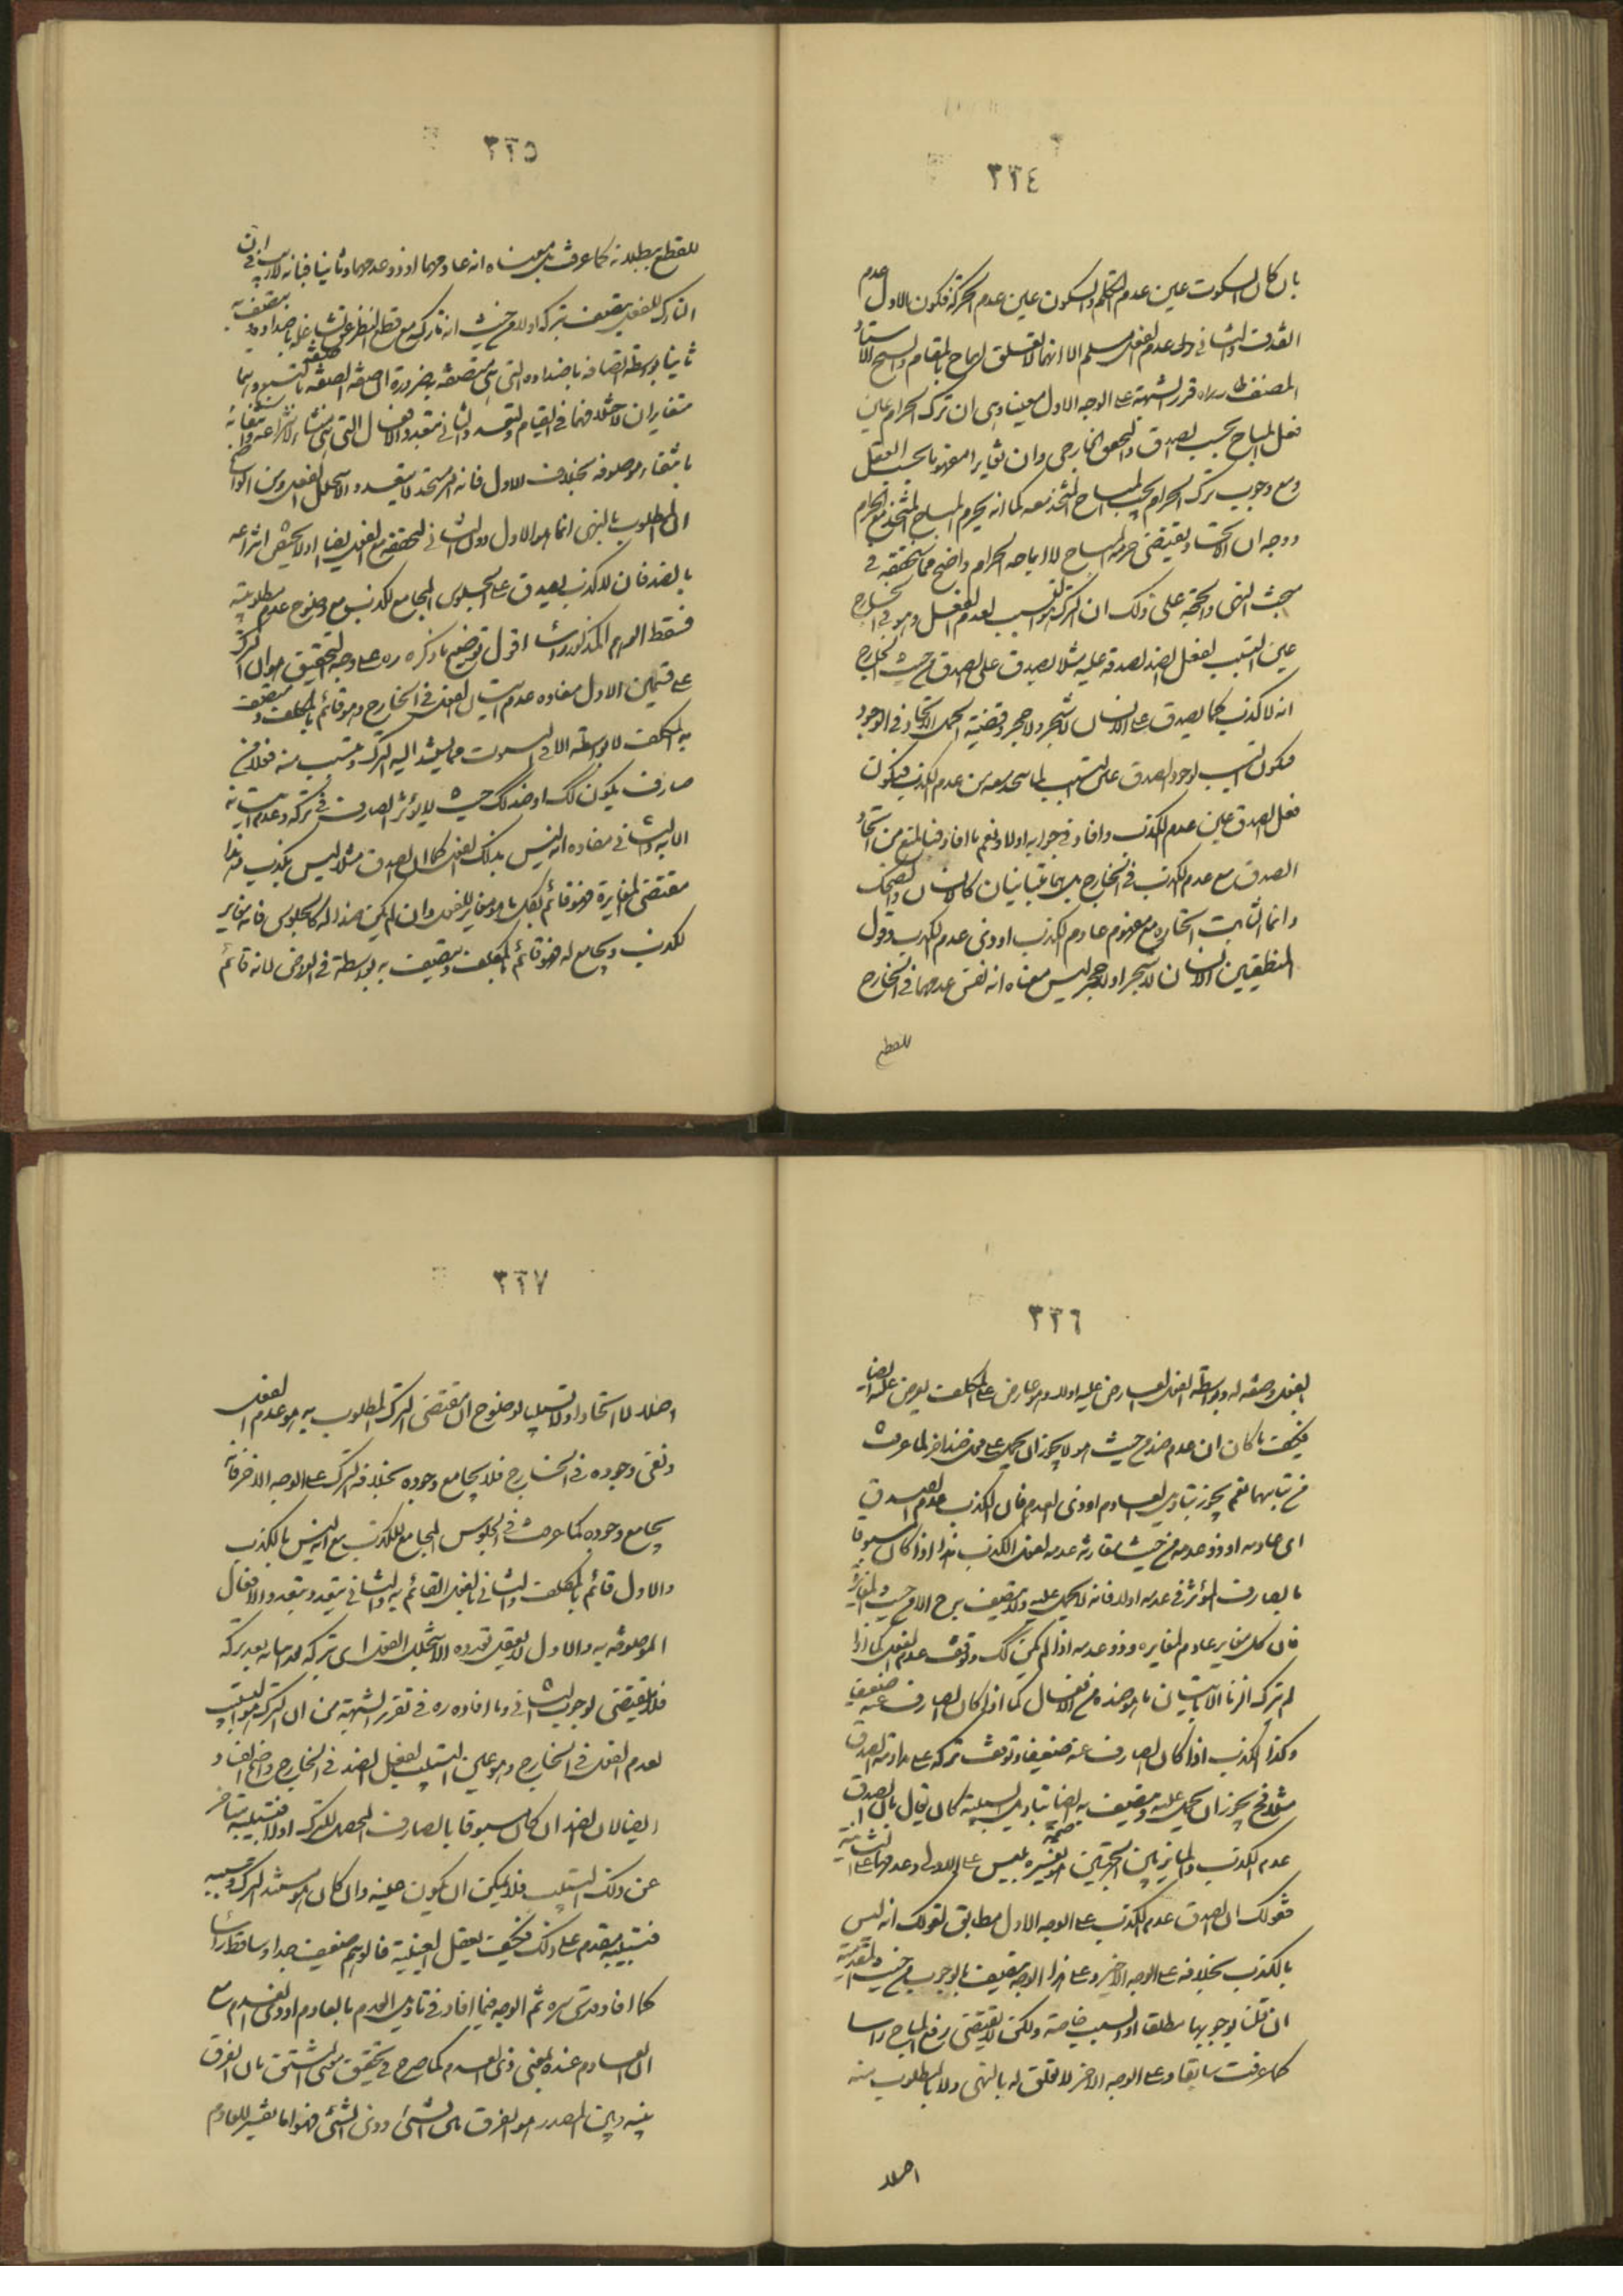 ٣٢٤
بان كان السكوت عين عدم التكلم والسكون عين عدم الحركة فكون الاول عدم
القذف والثاني ولى عدم الفعل مسلم الا انها لا تعلق لها بالمقام والشيخ الاستاد
المصنف قرر الشبهة على الوجه الاول معينا وهي ان ترك الحرام عين
فعل المباح بحسب الصدق والتحقق الخارجي وان تغايرا مفهوما بحسب العقل
ومع وجوب ترك الحرام يجب المباح المتحد معه كما انه يحرم المباح المتحد مع الحرام
ووجه ان الاتحاد يقتضي حرمة المباح لا اباحة الحرام واضح مما نحققه في
مبحث النهي والحجة على ذلك ان الترك هو التسبب لعدم الفعل وهو في الخارج
عين التسبب لفعل الضد لصدقه عليه مثلا يصدق على الصدق من حيث الخارج
انه لا كذب كما يصدق على الانسان لا شجر ولا حجر وقضية الحمل الاتحاد في الوجود
فيكون التسبب لوجود الصدق عين التسبب لما يتحد معه من عدم الكذب فيكون
فعل الصدق عين عدم الكذب وافاد في جوابه اولا ونعم ما افاد فيا لمنع من اتحاد
الصدق مع عدم الكذب في الخارج بل هما متباينان كالانسان والضحك
وانما الثابت اتحاده مع مفهوم عادم الكذب او ذي عدم الكذب وقول
المنطقيين الانسان لا شجر او لا حجر ليس معناه انه نفس عدمهما في الخارج
للقطع
٣٢٥
للقطع ببطلانه كما عرفت بل معناه انه عادمهما او ذو عدمهما وثانيا فبانه لا ريب في ان
التارك للفعل يتصف بتركه اولا من حيث انه تاركه مع قطع النظر عن تشاغله باضداده ويتصف به
ثانيا بواسطة اتصافه باضداده التي هي متصفة به ضرورة ان صفة الصفة صفة
متغايران لا مثلا فهما في القيام والتعدد والثاني متعدد والافعال التي هي منشاء لانتزاعه
بانتفاء موصوفه بخلاف الاول فانه امر متحد لا يتعدد والا بتخلل الفعل ومن الواضح
ان المطلوب بالنهي انما هو الاول دون الثاني لتحققه مع الفعل ايضا اذ لا يختص انتزاعه
بالضد فان لا كذب يصدق على الجلوس المجامع للكذب مع وضوح عدم مطلوبيته
فسقط التوهم المذكور راسا اقول توضيح ما ذكره ره على وجه التحقيق هو ان الترك
على قسمين الاول مفاده عدم اتيان الفعل في الخارج وهو قائم بالمكلف ويتصف
به المكلف لا بواسطة الا في الثبوت مما يستند اليه الترك وتسبب منه فعلا في
صارف يكون لك او ضد لك حيث لا يؤثر الصارف في تركه وعدم اتيانه
الا به والثاني مفاده انه ليس بذلك الفعل كما ان الصدق مثلا ليس بكذب وهذا
مقتضى المغايرة فهو قائم بكل ما هو مغاير للفعل وان لم يكن ضدا له كالجلوس فانه مغاير
للكذب ويجامع له فهو قائم بالمكلف ويتصف به بواسطة في العروض لانه قائم
٣٢٦
بالفعل وصفة له وبواسطة الفعل العارض عليه اولا وهو عارض على المكلف يعرض عليه ايضا
فكيف ما كان ان عدم ضد من حيث هو لا يجوز ان يحمل على فعل ضد اخر لما عرفت
من تباينهما نعم يجوز بتاويل العادم او ذي العدم فان الكذب عدم الصدق
اي عادمه او ذو عدمه من حيث مقارنة عدمه لفعل الكذب هذا اذا كان مسبوقا
بالصارف المؤثر في عدمه اولا فانه لا يحمل عليه ولا يتصف به ح الا من حيث المغايرة
فان كل مغاير عادم لمغايره وذو عدمه اذا لم يكن لك وتوقف عدم الفعل كما اذا
لم يترك الزنا الا باتيان ما هو ضده من الافعال كما اذا كان الصارف عنه ضعيفا
وكذا الكذب اذا كان الصارف عنه ضعيفا وتوقف تركه على مداومة الصدق
مثلا فح يجوز ان يحمل عليه ويتصف به ايضا بتاويل السببية كان يقال بان الصدق
عدم الكذب والمائز بين الحملين صحة تفسيره بليس على الاولى وعدمها على الثانية
فقولك ان الصدق عدم الكذب على الوجه الاول مطابق لقولك انه ليس
بالكذب بخلافه على الوجه الاخير وعلى هذا الوجه يتصف بالوجوب من حيث المقدمية
ان قلنا بوجوبها مطلقا او السبب خاصة ولكن لا يقتضي رفع المباح راسا
كما عرفت سابقا وعلى الوجه الاخر لا تعلق له بالنهي ولا بالمطلوب منه
اصلا
٣٢٧
اصلا لا اتحادا ولا تسبيبا لوضوح ان مقتضى الترك المطلوب به هو عدم الفعل
ونفي وجوده في الخارج فلا يجامع وجوده بخلاف الترك على الوجه الاخر فانه
يجامع وجوده كما عرفت في الجلوس المجامع للكذب مع انه ليس بالكذب
والاول قائم بالمكلف والثاني بالفعل القائم به والثاني يتعدد بتعدد الافعال
الموصوفة به والاول لا يعقل تعدده الا بتخلل الفعل اي بتركه ثم اتيانه بعد تركه
فلا يقتضي لوجوب الثاني وما افاده ره في تقرير الشبهة من ان الترك هو التسبب
لعدم الفعل في الخارج وهو عين التسبب لفعل الضد في الخارج واضح الفساد
ايضا لان الضد ان كان مسبوقا بالصارف المحصل للترك اولا فتسبيبه متاخر
عن ذلك التسبب فلا يمكن ان يكون عينه وان كان هو مستند الترك وسببه
فتسبيبه مقدم على ذلك فكيف يعقل العينية فالوهم ضعيف جدا وساقط راسا
كما افاد قدس سره ثم الوجه فيما افاد في تاويل العدم بالعادم او ذي العدم مع
ان العادم عنده بمعنى ذي العدم كما صرح في تحقيق معنى المشتق بان الفرق
بينه وبين المصدر هو الفرق بين الشيء وذي الشيء فهو اما تفسير للعادم